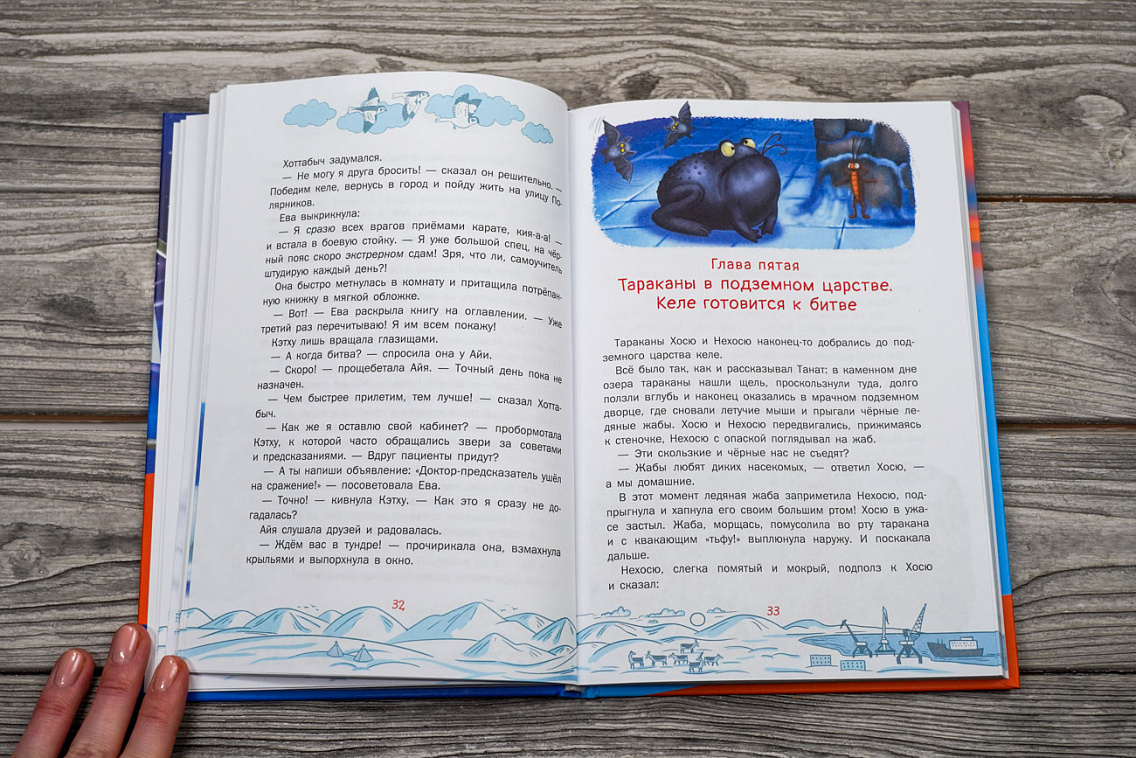 Хоттабыч задумался.
— Не могу я друга бросить! — сказал он решительно. —
Победим келе, вернусь в город и пойду жить на улицу По-
лярников.
Ева выкрикнула:
— Я сразу всех врагов приёмами карате, кия-а-а! —
и встала в боевую стойку. — Я уже большой спец, на чёр-
ный пояс скоро экстрерном сдам! Зря, что ли, самоучитель
штудирую каждый день?!
Она быстро метнулась в комнату и притащила потрёпан-
ную книжку в мягкой обложке.
— Вот! — Ева раскрыла книгу на оглавлении. — Уже
третий раз перечитываю! Я им всем покажу!
Кэтху лишь вращала глазищами.
— А когда битва? — спросила она у Айи.
— Скоро! — прощебетала Айя. — Точный день пока не
назначен.
— Чем быстрее прилетим, тем лучше! — сказал Хотта-
быч.
— Как же я оставлю свой кабинет? — пробормотала
Кэтху, к которой часто обращались звери за советами
и предсказаниями. — Вдруг пациенты придут?
— А ты напиши объявление: «Доктор-предсказатель ушёл
на сражение!» — посоветовала Ева.
— Точно! — кивнула Кэтху. — Как это я сразу не до-
гадалась?
Айя слушала друзей и радовалась.
— Ждём вас в тундре! — прочирикала она, взмахнула
крыльями и выпорхнула в окно.
32
Глава пятая
Тараканы в подземном царстве.
Келе готовится к битве
Тараканы Хосю и Нехосю наконец-то добрались до под-
земного царства келе.
Всё было так, как и рассказывал Танат: в каменном дне
озера тараканы нашли щель, проскользнули туда, долго
ползли вглубь и наконец оказались в мрачном подземном
дворце, где сновали летучие мыши и прыгали чёрные ле-
дяные жабы. Хосю и Нехосю передвигались, прижимаясь
к стеночке, Нехосю с опаской поглядывал на жаб.
— Эти скользкие и чёрные нас не съедят?
— Жабы любят диких насекомых, — ответил Хосю, —
а мы домашние.
В этот момент ледяная жаба заприметила Нехосю, под-
прыгнула и хапнула его своим большим ртом! Хосю в ужа-
се застыл. Жаба, морщась, помусолила во рту таракана
и с квакающим «тьфу!» выплюнула наружу. И поскакала
дальше.
Нехосю, слегка помятый и мокрый, подполз к Хосю
и сказал:
33